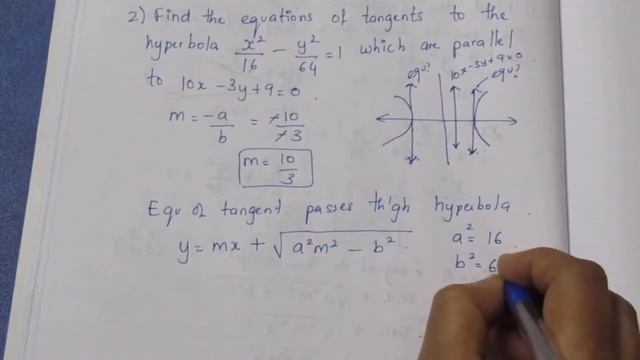 2) Find the equations of tangents to the
hyperbola x²/16 - y²/64 = 1 which are parallel
to 10x - 3y + 9 = 0.
equ?
10x - 3y + 9 = 0
equ?
m = -a/b = -10/-3
m = 10/3
Equ of tangent passes th'gh hyperbola.
y = mx + √(a²m² - b²)
a² = 16
b² = 6